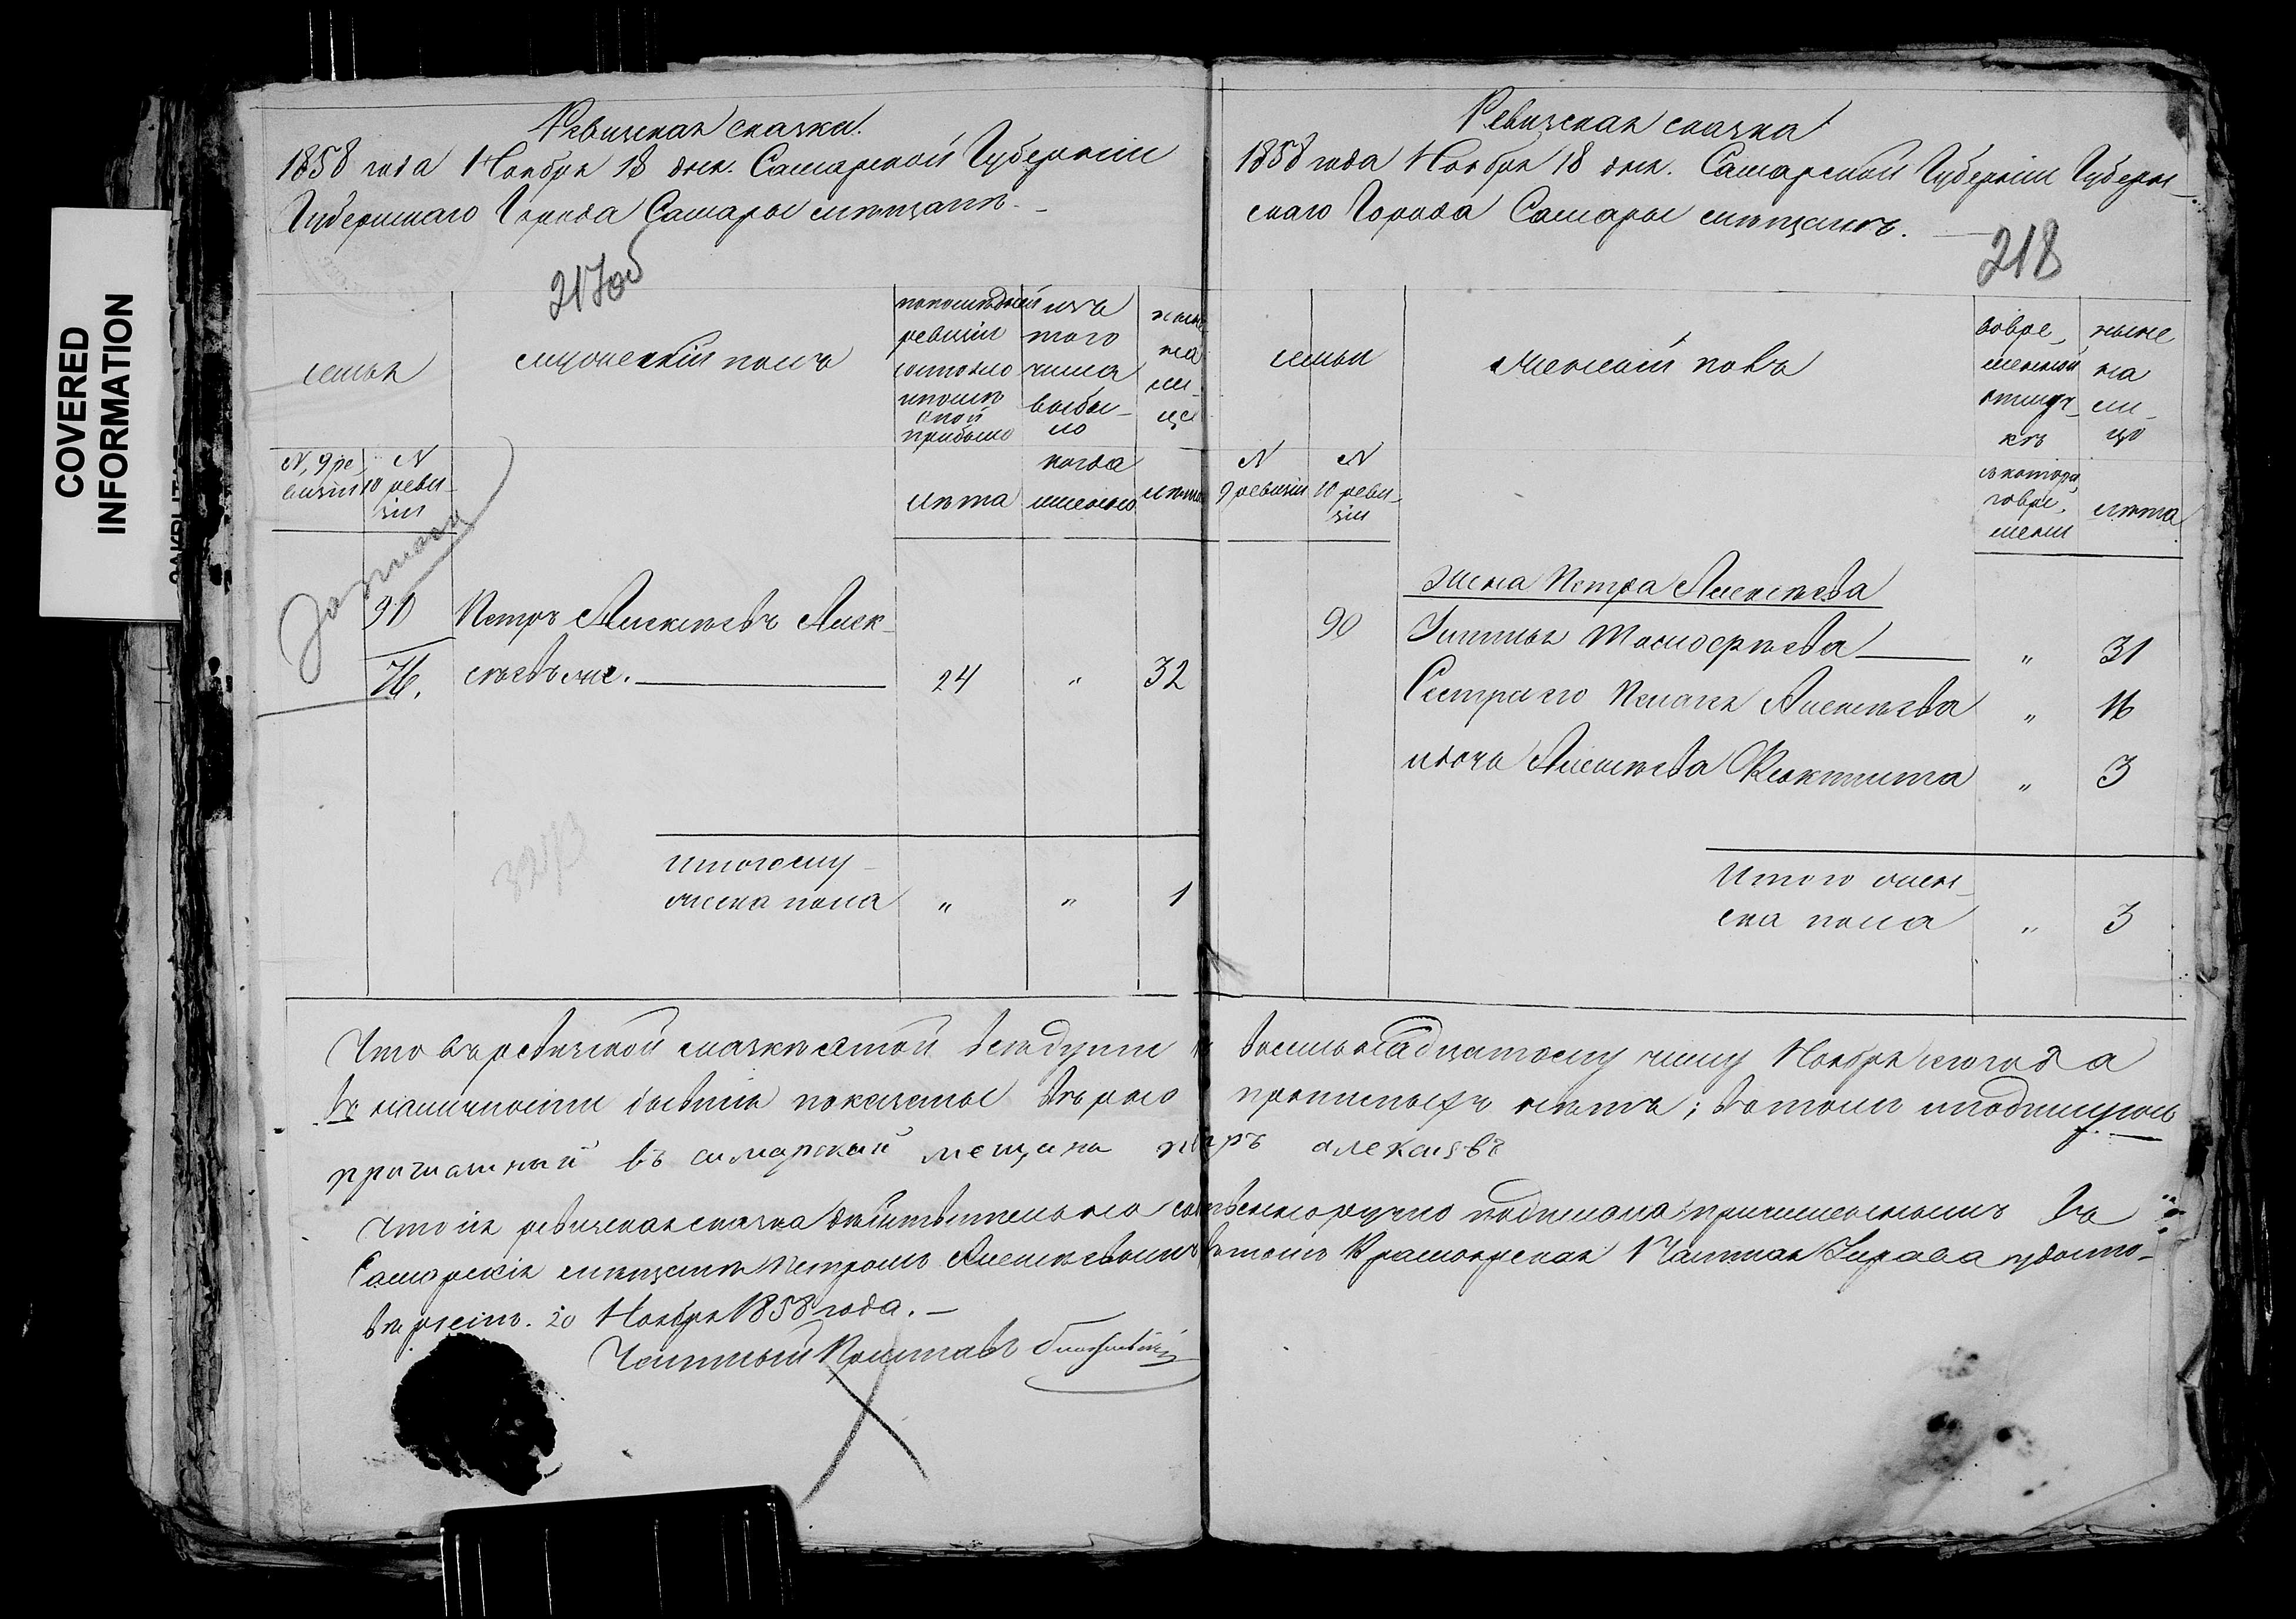 COVERED
INFORMATION
Ревизская сказка.
1858 года Ноября 18 дня. Самарской Губерніи
Губернскаго Города Самары мѣщанъ.
217об
семья
мужескій полъ
по послѣдней
ревизіи
состояло
и послѣ
оной
прибыло
изъ
того
числа
выбы-
ло
ныне
на
ли-
це
№ 9 ре
визіи
№
10 реви-
зіи
лѣта
когда
именно
лѣта
90
76.
Петръ Алексѣевъ Алек-
сѣевъ же.
24 „ 32
Итого му-
жеска пола „ „ 1
Ревизская сказка
1858 года Ноября 18 дня. Самарской Губерніи Губерн-
скаго Города Самары мѣщанъ.
218
семьи
женскій полъ
во вре-
менной
отлуч-
кѣ
ныне
на
ли-
цо
№
9 ревизіи
№
10 реви-
зіи
съ котора
го вре-
мени
лѣта
жена Петра Алексѣева
90
Тимофѣева „ 31
Сестра его Пелагея Алексѣева „ 16
и дочь Алексѣева Феоктиста „ 3
Итого жен-
ска пола „ 3
Что въ ревизской сказкѣ этой все души к восьмнадцатому числу Ноября сего года
въ наличности бывшія показаны вѣрно прописныхъ нѣтъ; въ томъ и подпишуюсь
причисленный въ самарскии мещяна петръ алексѣевъ
Что сія ревизская сказка дѣйствительно собственноручно подписана причисленнымъ въ
Самарскія мѣщане Петромъ Алексѣевымъ въ томъ Красноярская Частная Управа удосто-
вѣряетъ. 20 Ноября 1858 года.
Частный Приставъ